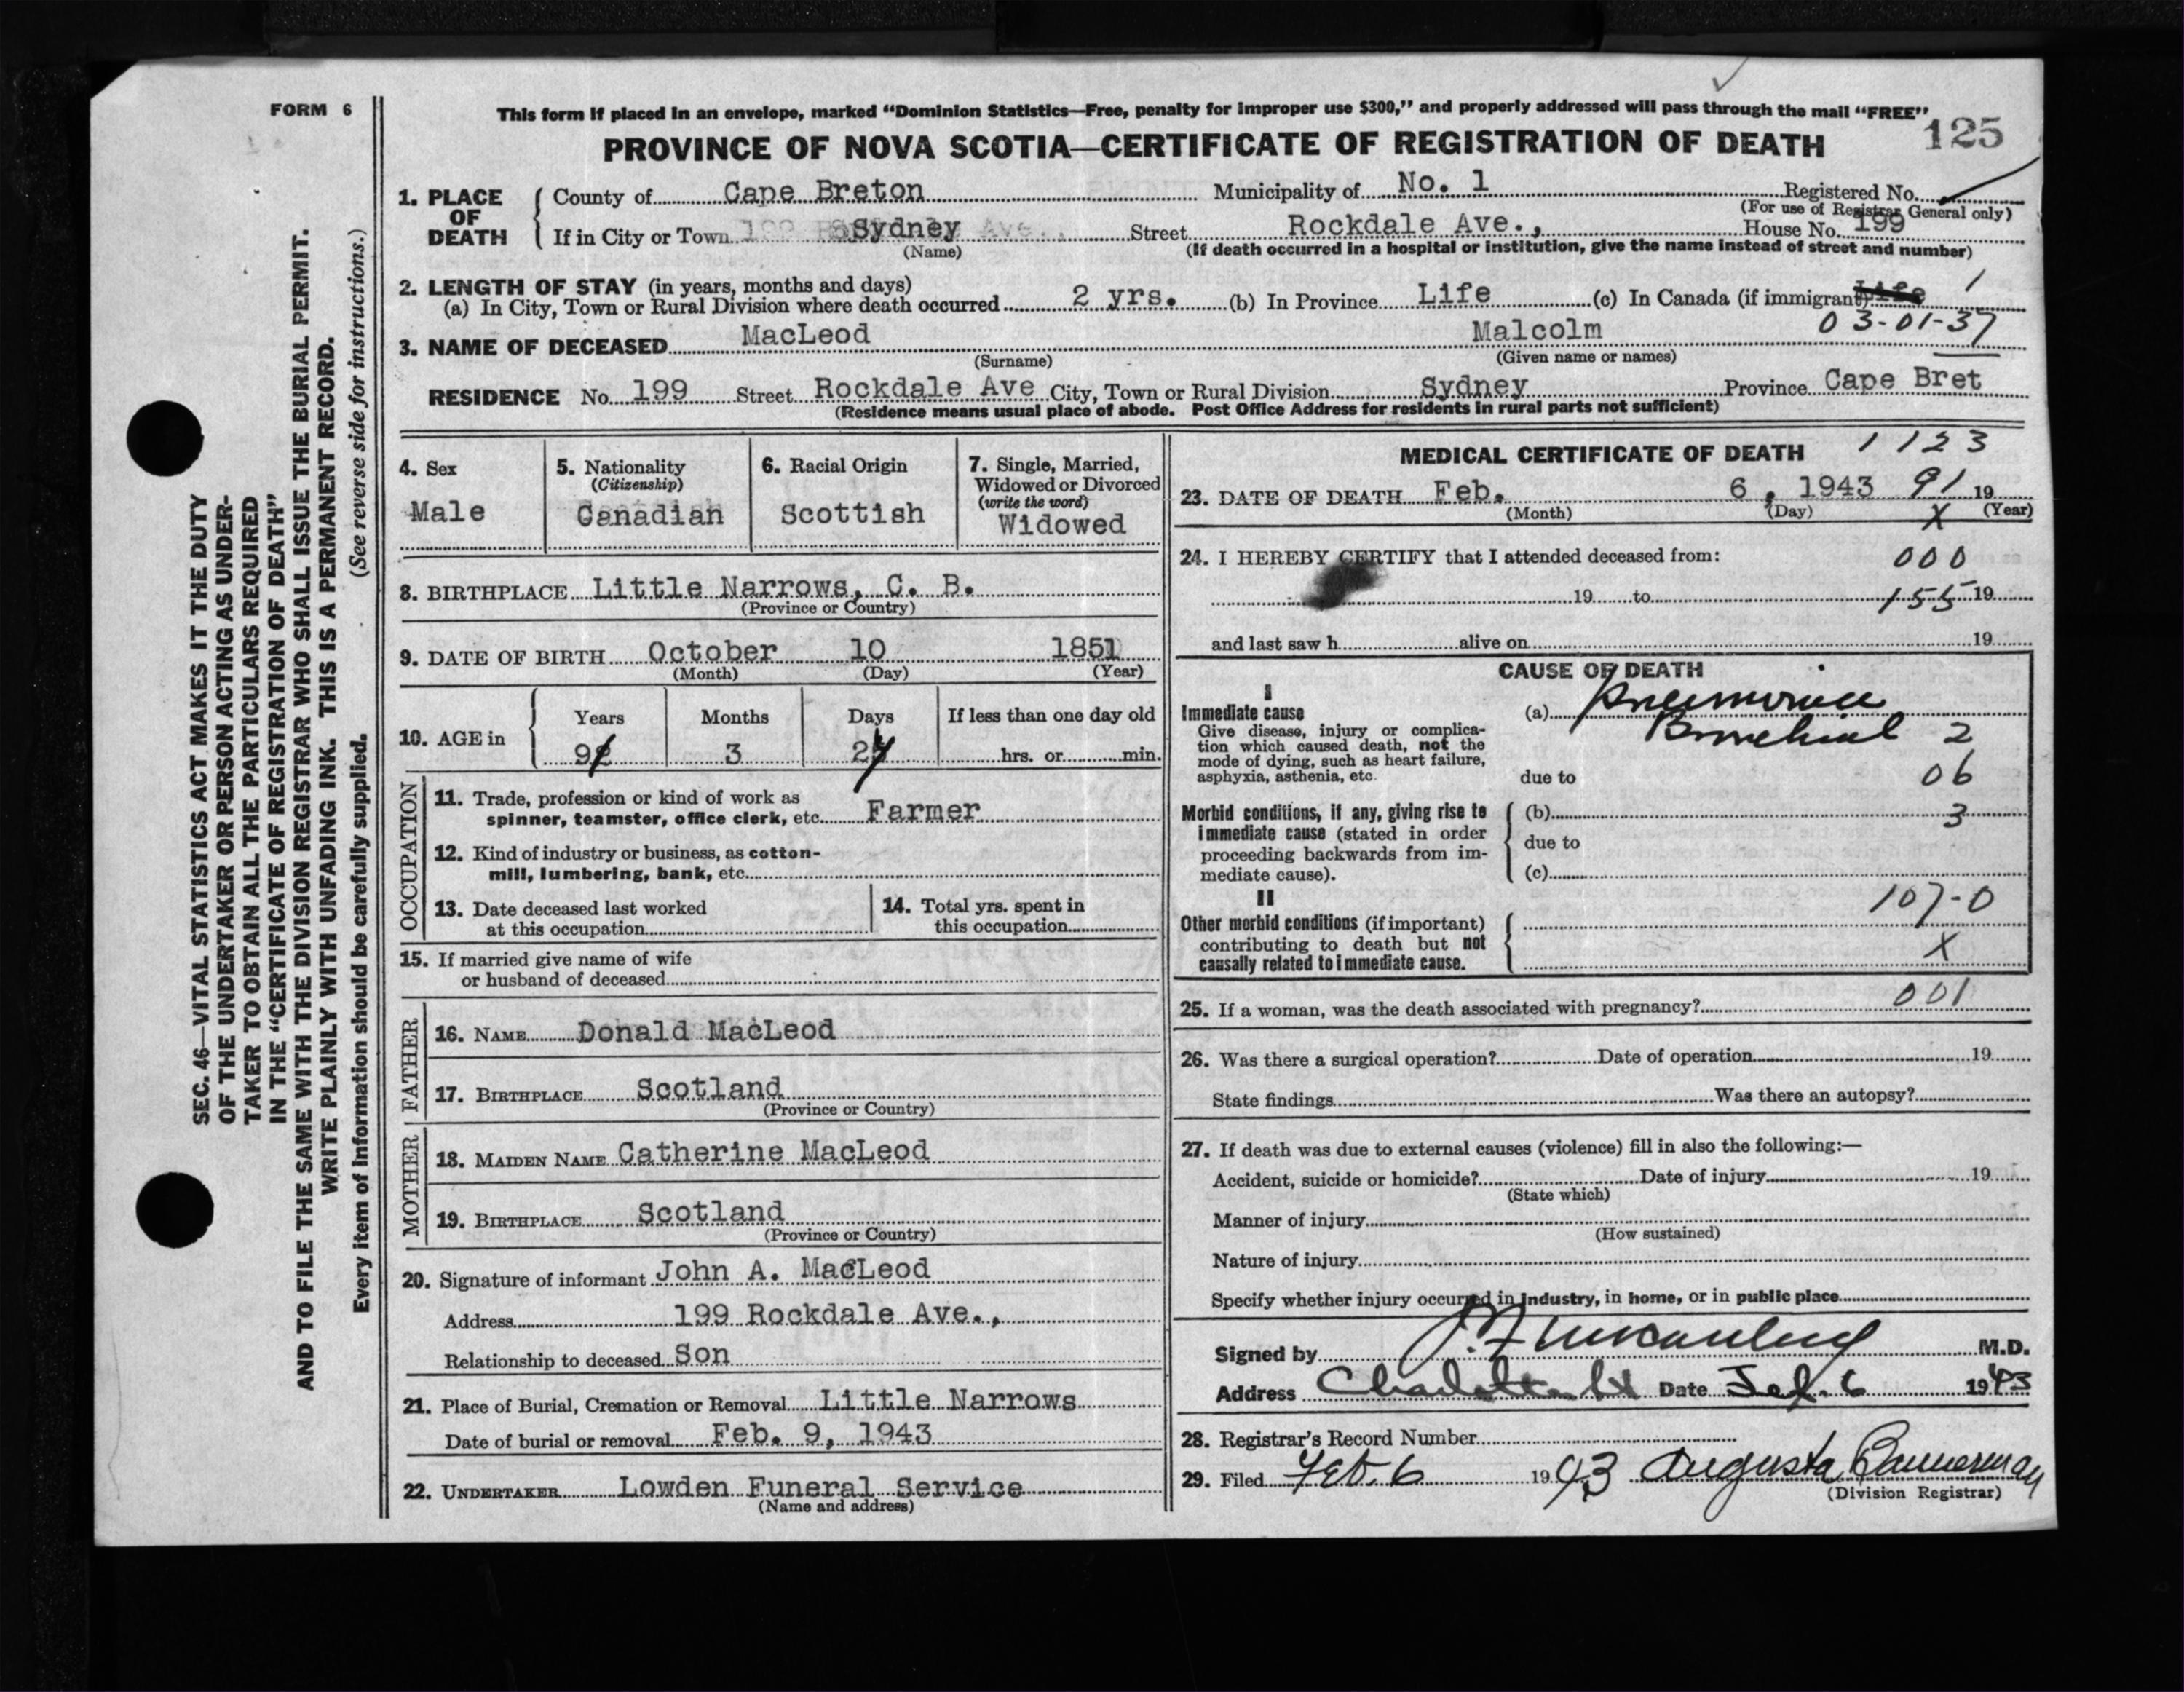 FORM 6
This form if placed in an envelope, marked "Dominion Statistics—Free, penalty for improper use $300," and properly addressed will pass through the mail "FREE"
PROVINCE OF NOVA SCOTIA—CERTIFICATE OF REGISTRATION OF DEATH 125
1. PLACE OF DEATH
County of Cape Breton Municipality of No. 1 Registered No.
(For use of Registrar General only)
If in City or Town Sydney Street Rockdale Ave., House No. 199
(Name) (If death occurred in a hospital or institution, give the name instead of street and number)
2. LENGTH OF STAY (in years, months and days)
(a) In City, Town or Rural Division where death occurred 2 yrs. (b) In Province Life (c) In Canada (if immigrant) Life 1
03-01-37
3. NAME OF DECEASED MacLeod Malcolm
(Surname) (Given name or names)
RESIDENCE No. 199 Street Rockdale Ave City, Town or Rural Division Sydney Province Cape Bret
(Residence means usual place of abode. Post Office Address for residents in rural parts not sufficient)
4. Sex
Male
5. Nationality
(Citizenship)
Canadian
6. Racial Origin
Scottish
7. Single, Married,
Widowed or Divorced
(write the word)
Widowed
8. BIRTHPLACE Little Narrows, C. B.
(Province or Country)
9. DATE OF BIRTH October 10 1851
(Month) (Day) (Year)
10. AGE in
Years Months Days If less than one day old
91 3 27 hrs. or min.
OCCUPATION
11. Trade, profession or kind of work as
spinner, teamster, office clerk, etc. Farmer
12. Kind of industry or business, as cotton-
mill, lumbering, bank, etc.
13. Date deceased last worked
at this occupation
14. Total yrs. spent in
this occupation
15. If married give name of wife
or husband of deceased
FATHER
16. NAME Donald MacLeod
17. BIRTHPLACE Scotland
(Province or Country)
MOTHER
18. MAIDEN NAME Catherine MacLeod
19. BIRTHPLACE Scotland
(Province or Country)
20. Signature of informant John A. MacLeod
Address 199 Rockdale Ave.,
Relationship to deceased Son
21. Place of Burial, Cremation or Removal Little Narrows
Date of burial or removal Feb. 9, 1943
22. UNDERTAKER Lowden Funeral Service
(Name and address)
MEDICAL CERTIFICATE OF DEATH 1123
23. DATE OF DEATH Feb. 6, 1943 91 19
(Month) (Day) X (Year)
24. I HEREBY CERTIFY that I attended deceased from: 000
19 to 155 19
and last saw h alive on 19
CAUSE OF DEATH
I
Immediate cause
Give disease, injury or complica-
tion which caused death, not the
mode of dying, such as heart failure,
asphyxia, asthenia, etc.
(a) Pneumonia
Bronchial 2
due to 06
Morbid conditions, if any, giving rise to
immediate cause (stated in order
proceeding backwards from im-
mediate cause).
(b) 3
due to
(c)
II 107-0
Other morbid conditions (if important)
contributing to death but not
causally related to immediate cause.
X
25. If a woman, was the death associated with pregnancy? 001
26. Was there a surgical operation? Date of operation 19
State findings Was there an autopsy?
27. If death was due to external causes (violence) fill in also the following:—
Accident, suicide or homicide? Date of injury 19
(State which)
Manner of injury
(How sustained)
Nature of injury
Specify whether injury occurred in industry, in home, or in public place
Signed by M.D.
Address Charlotte St Date Feb. 6 1943
28. Registrar's Record Number
29. Filed Feb. 6 1943 Augusta Bannerman
(Division Registrar)
SEC. 46—VITAL STATISTICS ACT MAKES IT THE DUTY
OF THE UNDERTAKER OR PERSON ACTING AS UNDER-
TAKER TO OBTAIN ALL THE PARTICULARS REQUIRED
IN THE "CERTIFICATE OF REGISTRATION OF DEATH"
AND TO FILE THE SAME WITH THE DIVISION REGISTRAR WHO SHALL ISSUE THE BURIAL PERMIT.
WRITE PLAINLY WITH UNFADING INK. THIS IS A PERMANENT RECORD.
Every item of information should be carefully supplied. (See reverse side for instructions.)